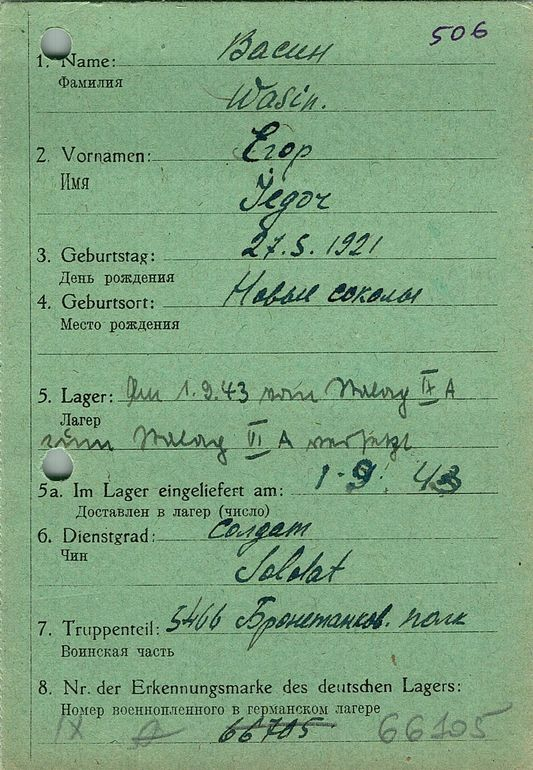 506
Васин
1. Name:
Фамилия
Wasin.
Егор
2. Vornamen:
Имя
Jegor
3. Geburtstag: 27.5.1921
День рождения
4. Geburtsort: Новые соколы
Место рождения
5. Lager: Am 1.9.43 vom Stalag IX A
Лагер
zum Stalag VI A versetzt
5a. Im Lager eingeliefert am: 1-9. 43
Доставлен в лагер (число)
6. Dienstgrad: солдат
Чин
Soldat
7. Truppenteil: 5466 Бронетанков. полк
Воинская часть
8. Nr. der Erkennungsmarke des deutschen Lagers:
Номер военнопленного в германском лагере
IX A 66705 66105